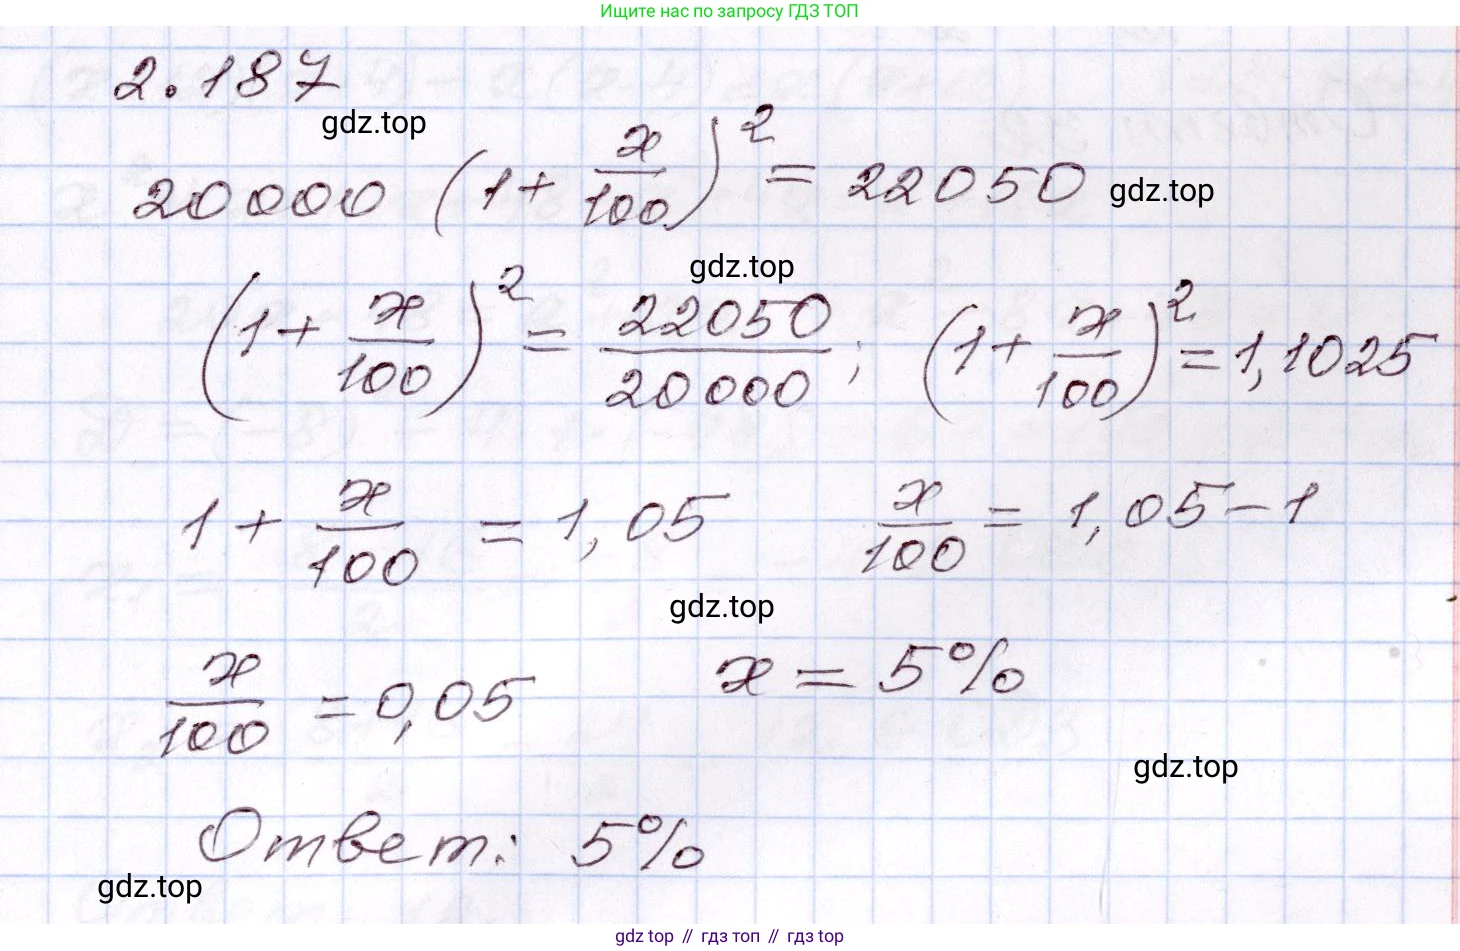 Ищите нас по запросу ГДЗ ТОП
2.187
gdz.top
20000 (1 + x/100)² = 22050
gdz.top
gdz.top
(1 + x/100)² = 22050/20000 ; (1 + x/100)² = 1,1025
1 + x/100 = 1,05 x/100 = 1,05 - 1
gdz.top
x/100 = 0,05 x = 5%
gdz.top
Ответ: 5%
gdz.top
gdz top // гдз топ // гдз top